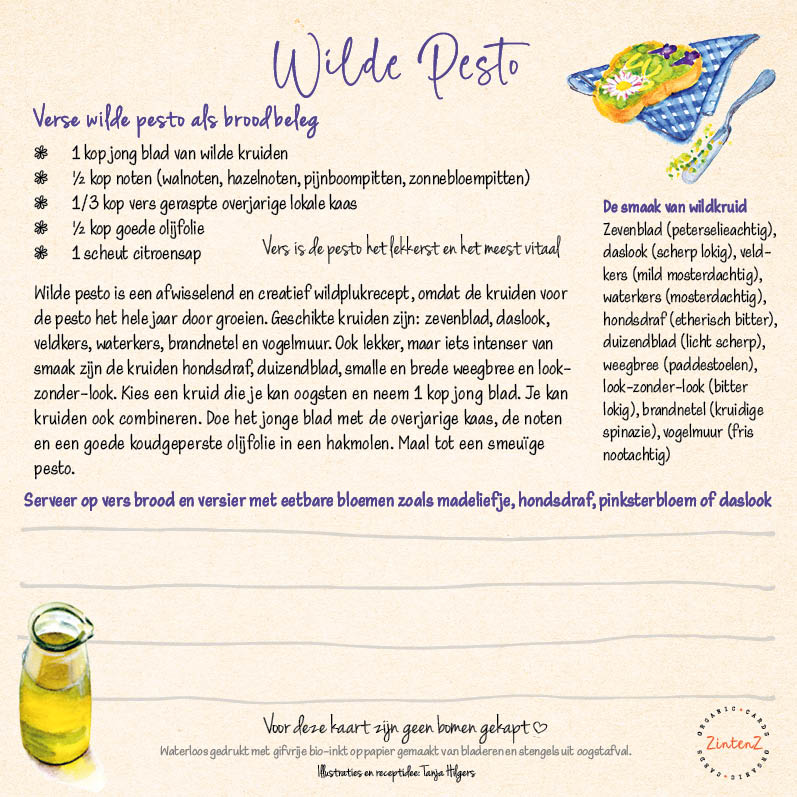 Wilde Pesto
Verse wilde pesto als broodbeleg
1 kop jong blad van wilde kruiden
½ kop noten (walnoten, hazelnoten, pijnboompitten, zonnebloempitten)
1/3 kop vers geraspte overjarige lokale kaas
½ kop goede olijfolie
1 scheut citroensap
Vers is de pesto het lekkerst en het meest vitaal
Wilde pesto is een afwisselend en creatief wildplukrecept, omdat de kruiden voor
de pesto het hele jaar door groeien. Geschikte kruiden zijn: zevenblad, daslook,
veldkers, waterkers, brandnetel en vogelmuur. Ook lekker, maar iets intenser van
smaak zijn de kruiden hondsdraf, duizendblad, smalle en brede weegbree en look-
zonder-look. Kies een kruid die je kan oogsten en neem 1 kop jong blad. Je kan
kruiden ook combineren. Doe het jonge blad met de overjarige kaas, de noten
en een goede koudgeperste olijfolie in een hakmolen. Maal tot een smeuïge
pesto.
De smaak van wildkruid
Zevenblad (peterselieachtig),
daslook (scherp lokig), veld-
kers (mild mosterdachtig),
waterkers (mosterdachtig),
hondsdraf (etherisch bitter),
duizendblad (licht scherp),
weegbree (paddestoelen),
look-zonder-look (bitter
lokig), brandnetel (kruidige
spinazie), vogelmuur (fris
nootachtig)
Serveer op vers brood en versier met eetbare bloemen zoals madeliefje, hondsdraf, pinksterbloem of daslook
Voor deze kaart zijn geen bomen gekapt
Waterloos gedrukt met gifvrije bio-inkt op papier gemaakt van bladeren en stengels uit oogstafval.
Illustraties en receptidee: Tanja Hilgers
ORGANIC • CARDS ORGANIC • CARDS
ZintenZ